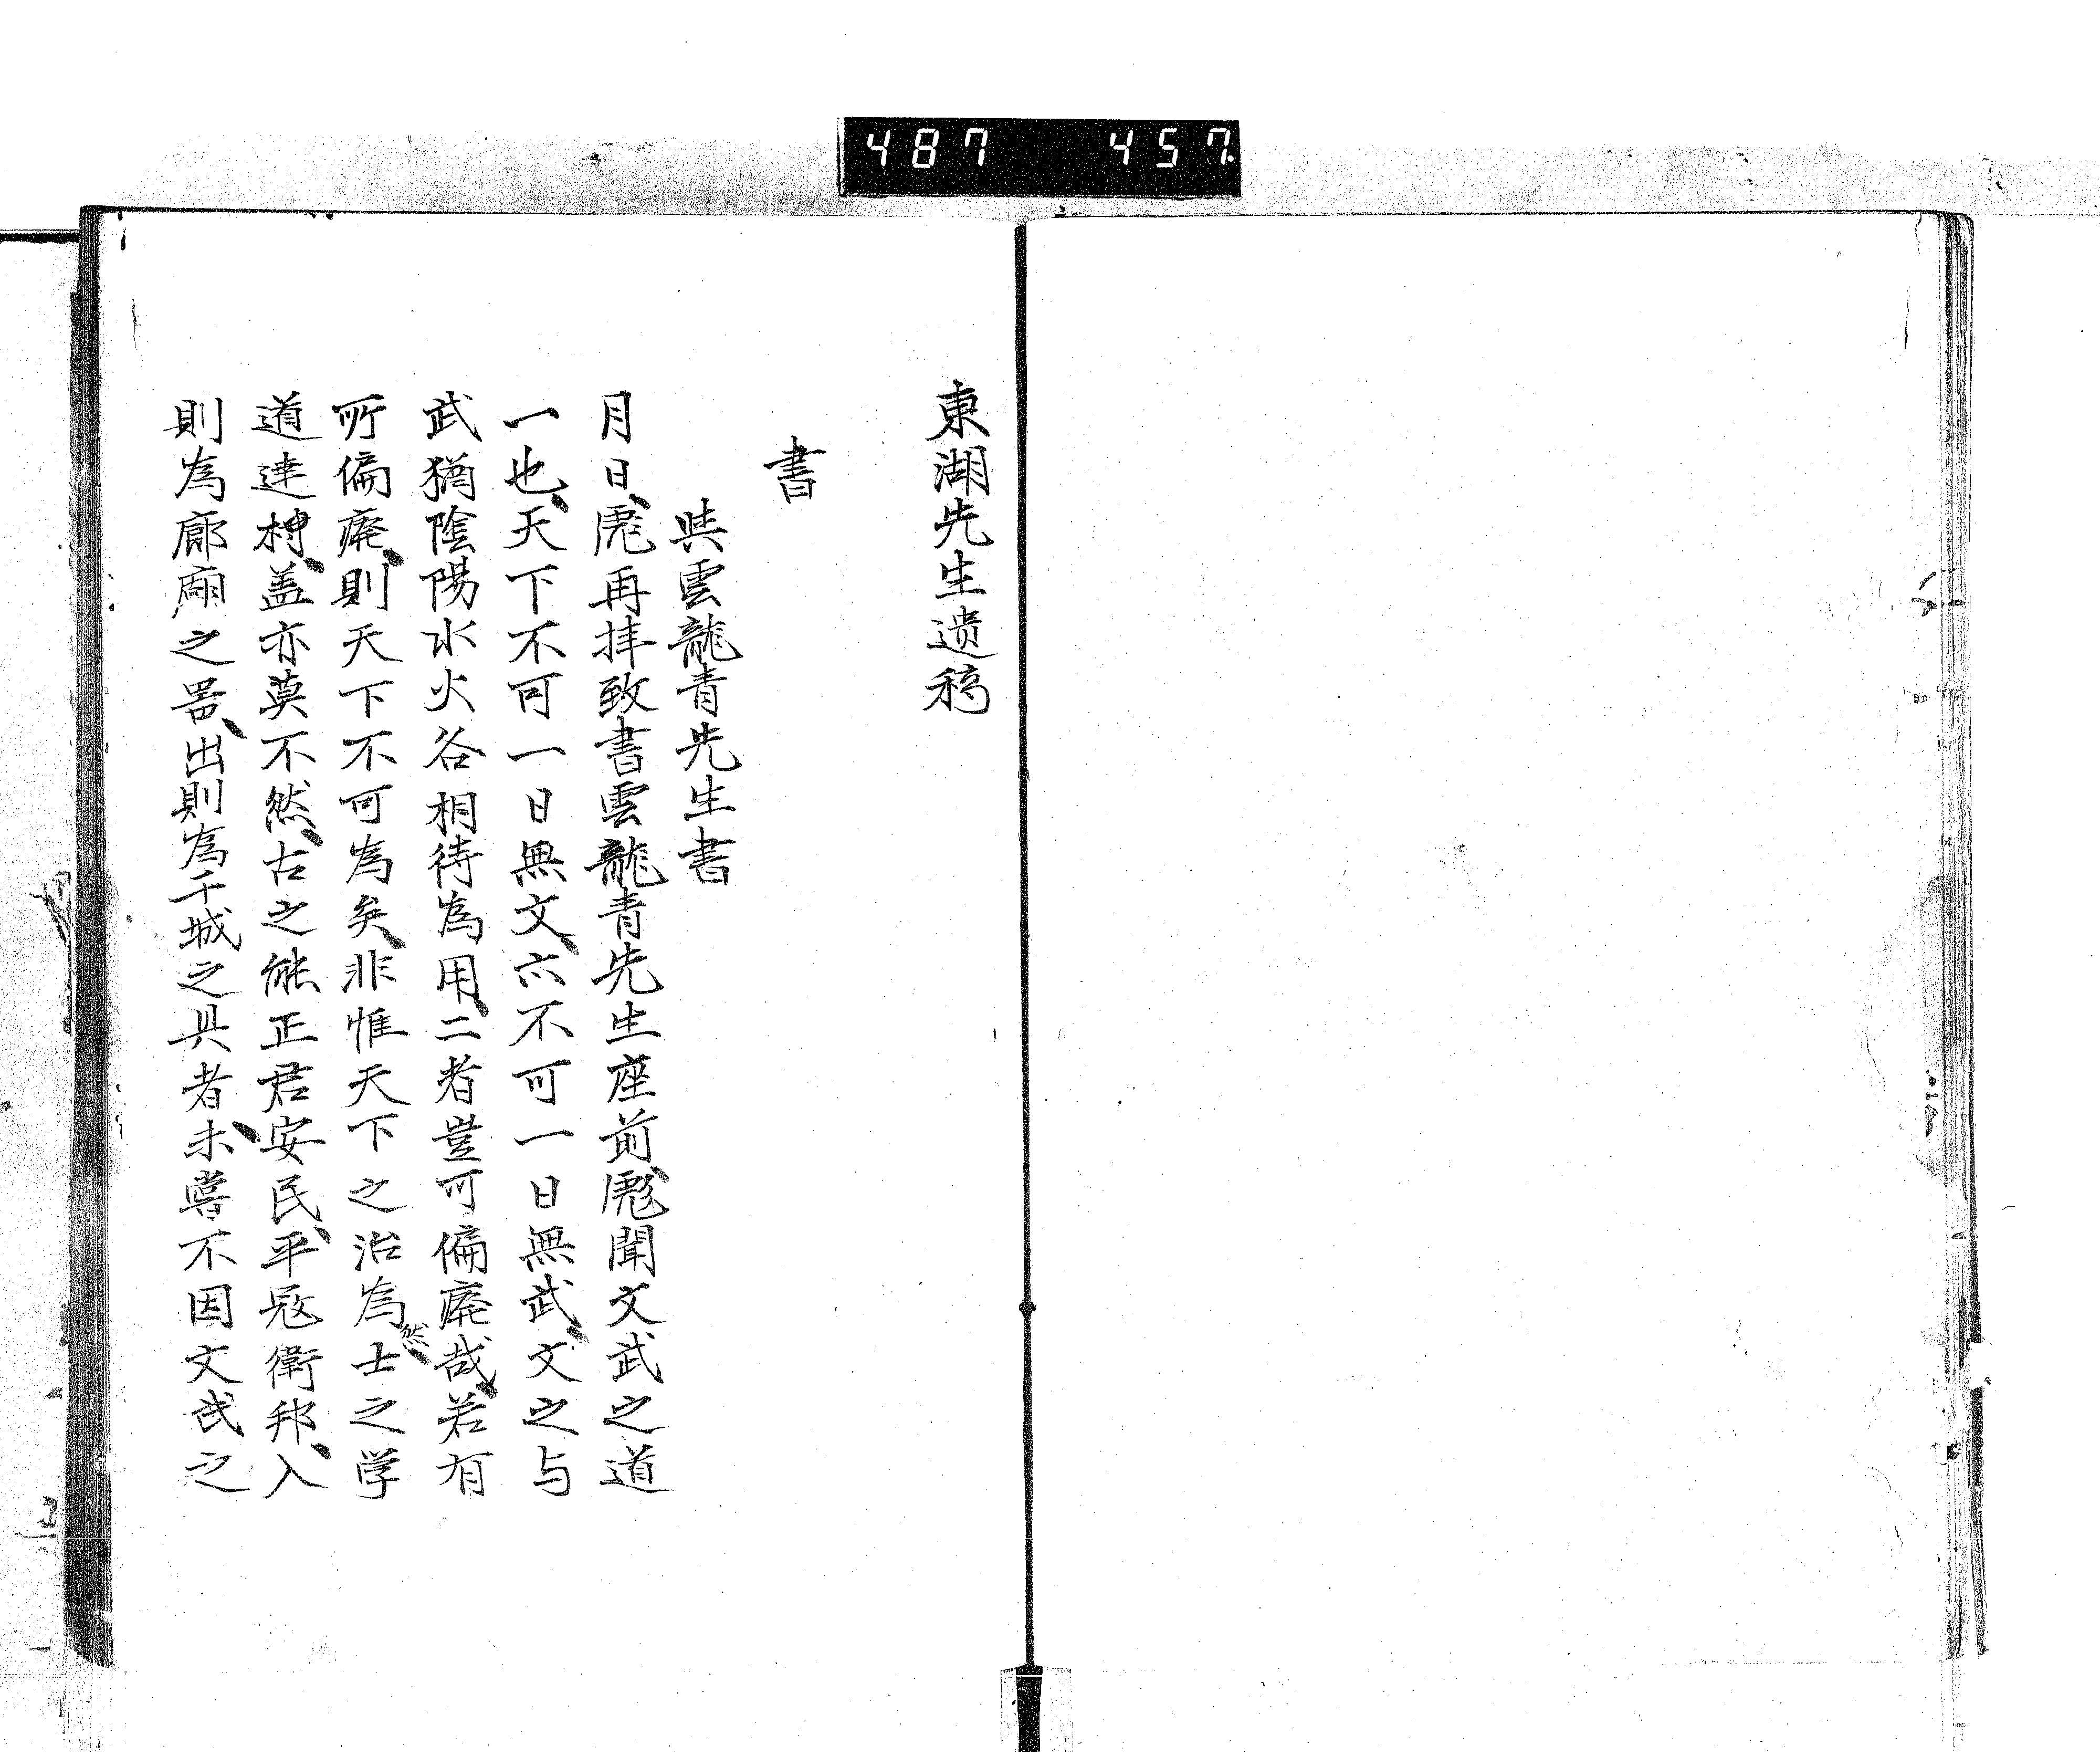 487 457
東湖先生遗稿
書
與雲龍青先生書
月日、彪再拝致書雲龍青先生座前、彪聞文武之道
一也、天下不可一日無文、六不可一日無武、文之与
武猶陰陽水火各相待為用、二者豈可偏廃哉、若有
所偏廃、則天下不可為矣、非惟天下之治為然、士之学
道達材、盖亦莫不然、古之能正君安民、平冦衛邦、入
則為廊廟之噐、出則為干城之具者、未嘗不因文武之